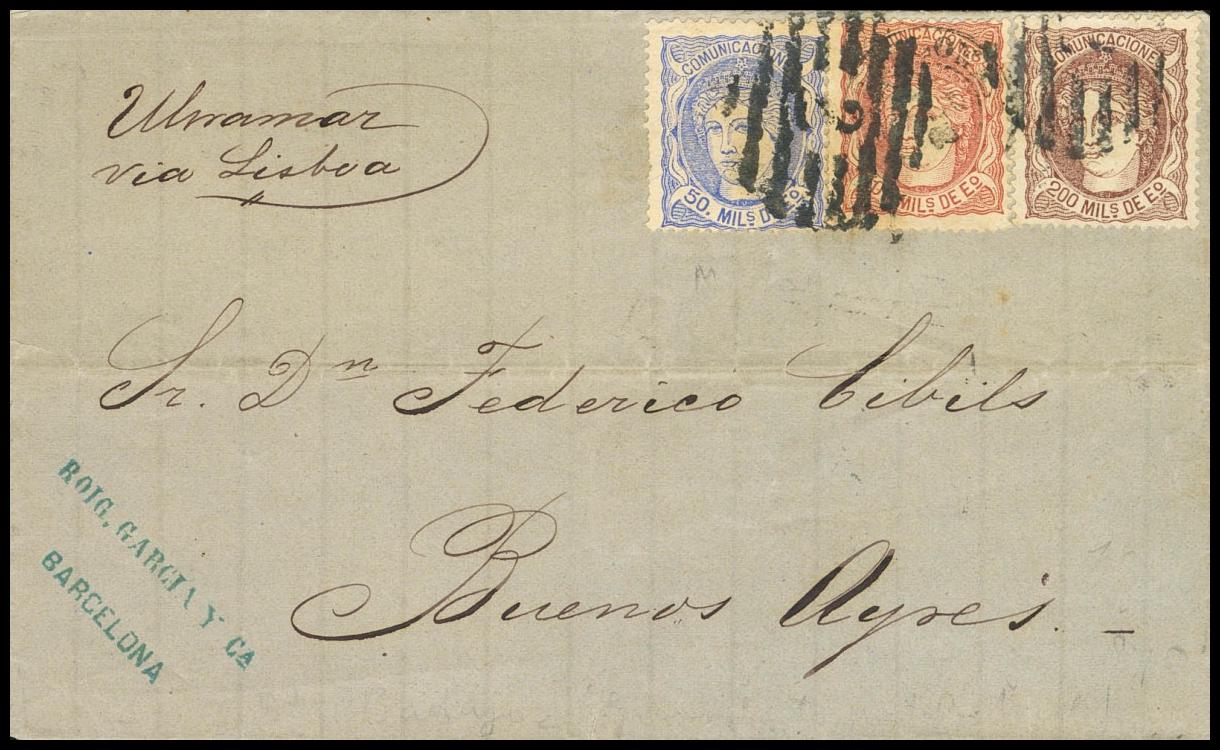 COMUNICACIONES
50. MILS DE Eº
COMUNICACIONES
MILS DE Eº
COMUNICACIONES
200 MILS DE Eº
2
Ultramar
via Lisboa
Sr. Dn Federico Cibils
Buenos Ayres. -
ROIG, GARCIA Y Cª
BARCELONA